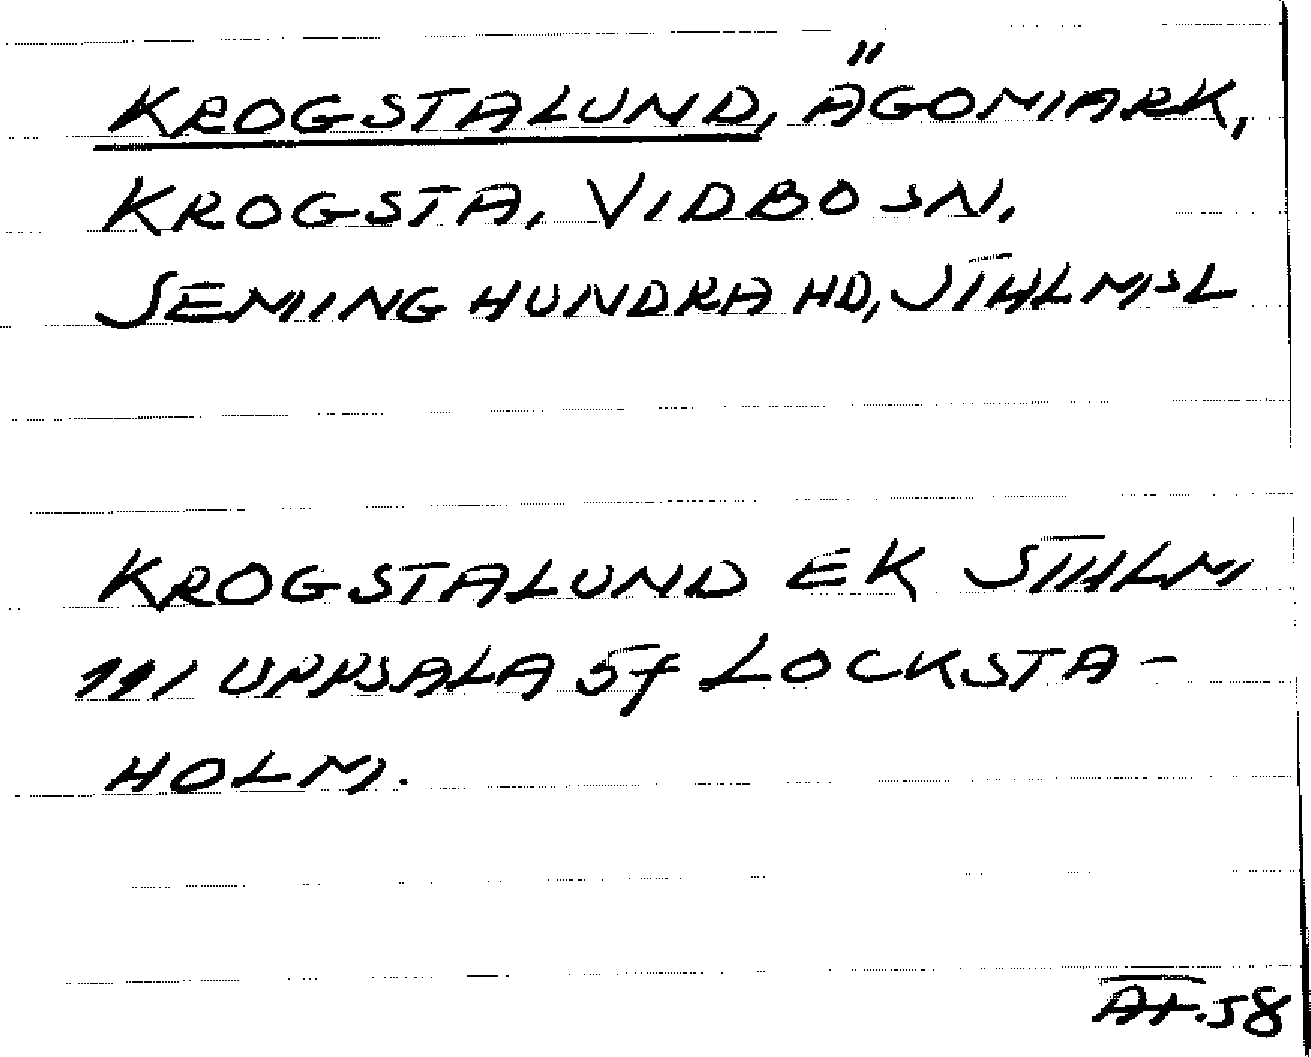 KROGSTALUND, ÄGOMARK,
KROGSTA, VIDBO SN,
SEMINGHUNDRA HD, STHLMSL
KROGSTALUND EK STHLM
111 UPPSALA 5f LOCKSTA-
HOLM.
AT.58